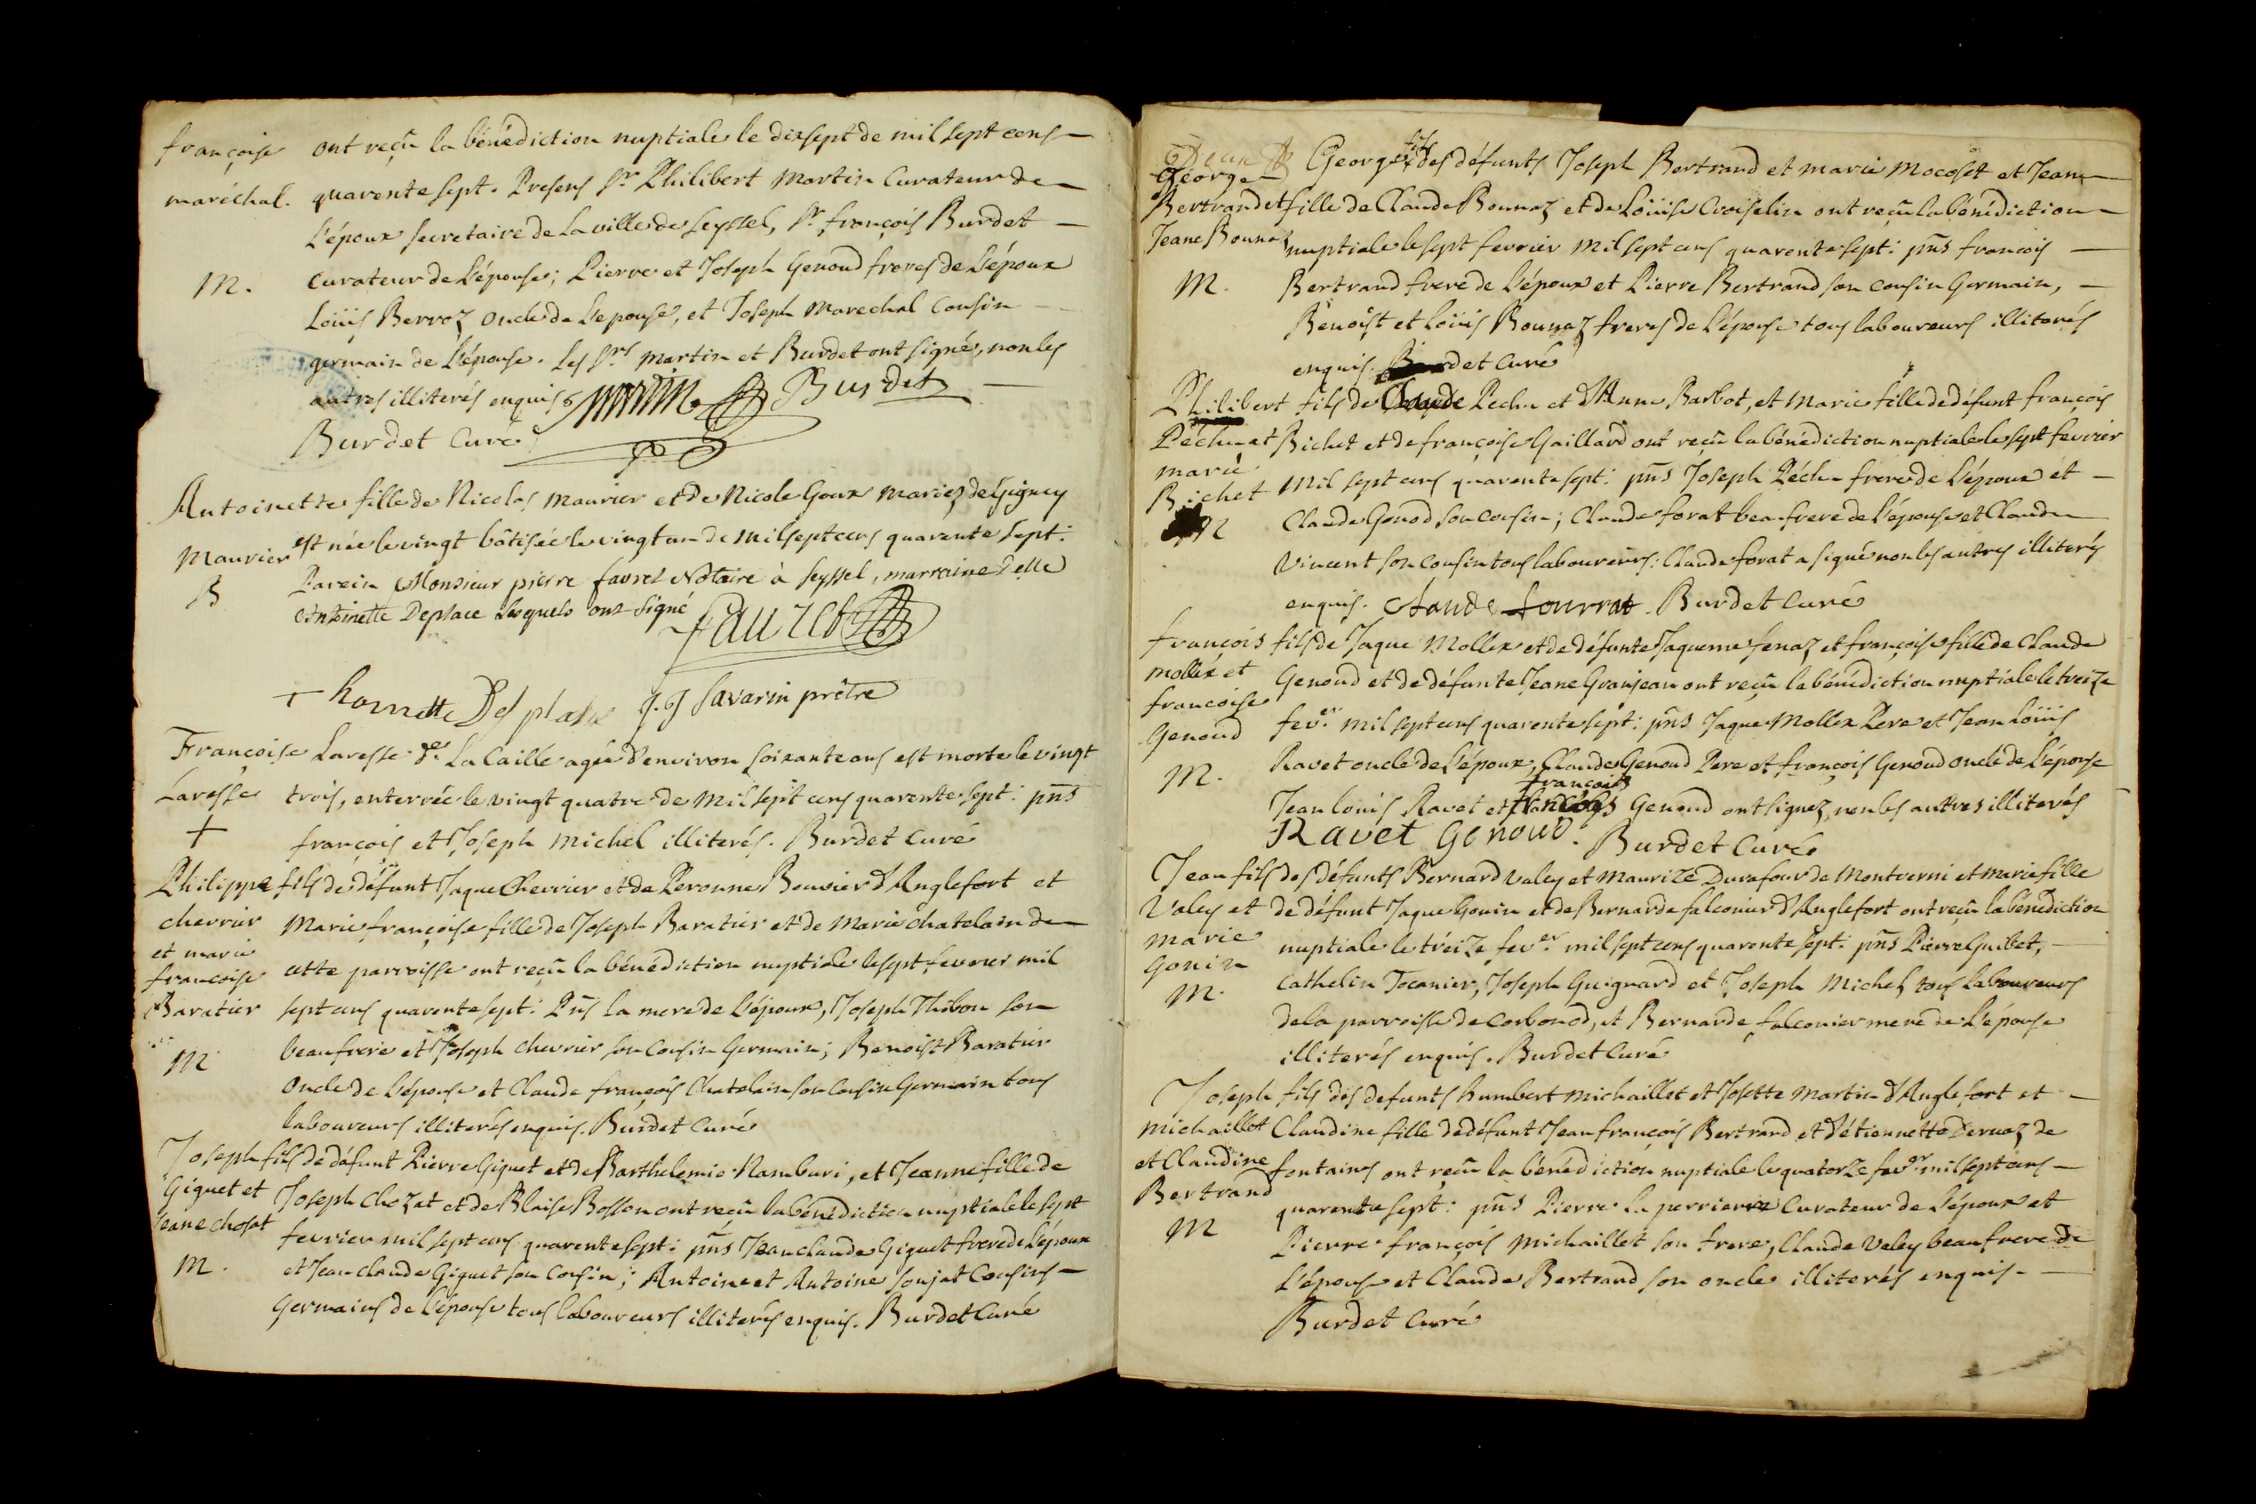 françoise ont reçu la bénédiction nuptiale le dix sept de mil sept cens
maréchal. quarente sept. Presens Sr Philibert Martin Curateur de
L'époux secretaire de la ville de Seyssel, Sr françois Burdet
M. Curateur de L'épouse; Pierre et Joseph Genoud freres de L'époux
Loüis Berroz oncle de L'epouse, et Joseph Marechal Cousin
germain de L'épouse. Les Srs Martin et Burdet ont signé, non les
autres illiterés enquis. Martin Burdet
Burdet Curé
Antoinette fille de Nicolas Maurier et de Nicole Goux mariez de Gigney
Maurier est née le vingt bâtisée le vingt un de mil sept cens quarente sept.
B Parein Monsieur pierre favret Notaire à Seyssel, marraine Delle
Antoinette Deplace lesquels ont signé
Favret
thoinette Desplace J. J Savarin prêtre
Françoise Laresse de La Caille agée d'environ soixante ans est morte le vingt
Laresse trois, enterrée le vingt quatre de mil sept cens quarente sept: pñs
+ françois et Joseph Michel illiterés. Burdet Curé
Philippe fils de défunt Jaque Chevrier et de Peronne Bouvier d'Anglefort et
chevrier Marie françoise fille de Joseph Baratier et de Marie Chatelain de
et marie
françoise cette parroisse ont reçu la bénédiction nuptiale le sept fevrier mil
Baratier sept cens quarente sept: Pñs la mere de L'époux, Joseph Thibou son
beaufrere et Joseph chevrier son Cousin Germain; Benoist Baratier
M Oncle de L'épouse et Claude françois Chatelain son Cousin Germain tous
laboureurs illiterés enquis. Burdet Curé
Joseph fils de défunt Pierre Giguet et de Barthelemie Namburi, et Jeanne fille de
Giguet et Joseph Chozat et de Blaise Bosson ont reçu la bénédiction nuptiale le sept
Jeane chosat fevrier mil sept cens quarente sept: pñs Jean claude Giguet frere de L'époux
M. et Jean claude Giguet son Cousin; Antoine et Antoine Soujat Cousins
Germains de L'épouse tous laboureurs illiterés enquis. Burdet Curé
George fils des défunts Joseph Bertrand et marie Mocoset et Jeane
George
Bertrand et fille de Claude Bonnaz et de Loüise Croiselin ont reçu la bénédiction
Jeane Bonnaz nuptiale le sept fevrier mil sept cens quarente sept: pñs françois
M. Bertrand frere de L'époux et Pierre Bertrand son Cousin Germain,
Benoist et Loüis Bonnaz freres de L'épouse tous laboureurs illiterés
enquis. Burdet Curé
Philibert fils de Claude Pechu et d'Anne Barbot, et Marie fille de défunt françois
Péchu et Bichet et de françoise Gaillard ont reçu la bénédiction nuptiale le sept fevrier
marie
Bichet mil sept cens quarente sept: pñs Joseph Péchu frere de L'époux et
M Claude Genod son Cousin; Claude forat beaufrere de L'épouse et Claude
Vincent son Cousin tous laboureurs: Claude forat a signé non les autres illiterés
enquis. claude fourrat. Burdet Curé
françois fils de Jaque Mollex et de défunte Jaquema fenaz et françoise fille de Claude
mollex et Genoud et de défunte Jeane Granjean ont reçu la bénédiction nuptiale le treize
françoise
Genoud fever. mil sept cens quarente sept: pñs Jaque Mollex Pere et Jean Loüis
M. Ravet oncle de L'époux, Claude Genoud Pere et françois Genoud oncle de L'épouse
Jean louis Ravet et françois Genoud ont signez, non les auttres illiterés
Ravet Genoud. Burdet Curé
Jean fils des défunts Bernard Valey et Maurize Durafour de Montverni et marie fille
Valey et de défunt Jaque Gonin et de Bernarde falconier d'Anglefort ont reçu la bénédiction
marie nuptiale le tréize fever. mil sept cens quarente sept: pñs Pierre Guibet,
Gonin
M. Cathelin Tocanier, Joseph Guignard et Joseph Michel tous Laboureurs
de la parroisse de Corbonod, et Bernarde falconier mere de L'épouse
illiterés enquis. Burdet Curé
Joseph fils des defunts humbert Michaillet et Josette Martin d'Anglefort et
Michaillet Claudine fille de défunt Jean françois Bertrand et d'étiennette Dervaz de
et Claudine fontaines ont reçu la bénédiction nuptiale le quatorze fever. mil sept cens
Bertrand quarente sept: pñs Pierre La perriere Curateur de L'époux et
M Pierre françois Michaillet son frere, Claude Valey beaufrere de
L'épouse et Claude Bertrand son oncle illiterés enquis.
Burdet Curé